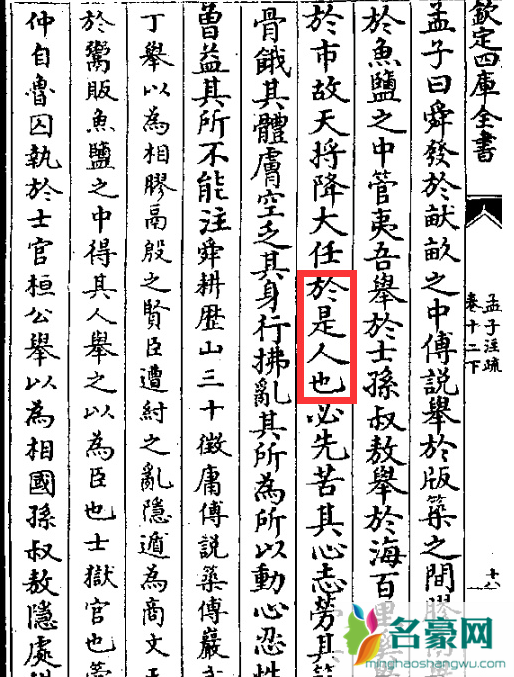 欽定四庫全書
孟子注疏
卷十二下
十八
孟子曰舜發於畎畝之中傅說舉於版築之間膠鬲舉
於魚鹽之中管夷吾舉於士孫叔敖舉於海百里奚舉
於市故天将降大任於是人也必先苦其心志勞其筋
骨餓其體膚空乏其身行拂亂其所為所以動心忍性
曾益其所不能注舜耕歴山三十徵庸傅說築傅巖武
丁舉以為相膠鬲殷之賢臣遭紂之亂隱遁為商文王
於鬻販魚鹽之中得其人舉之以為臣也士獄官也管
仲自魯囚執於士官桓公舉以為相國孫叔敖隱處
名豪网
minghaoshangwu.com